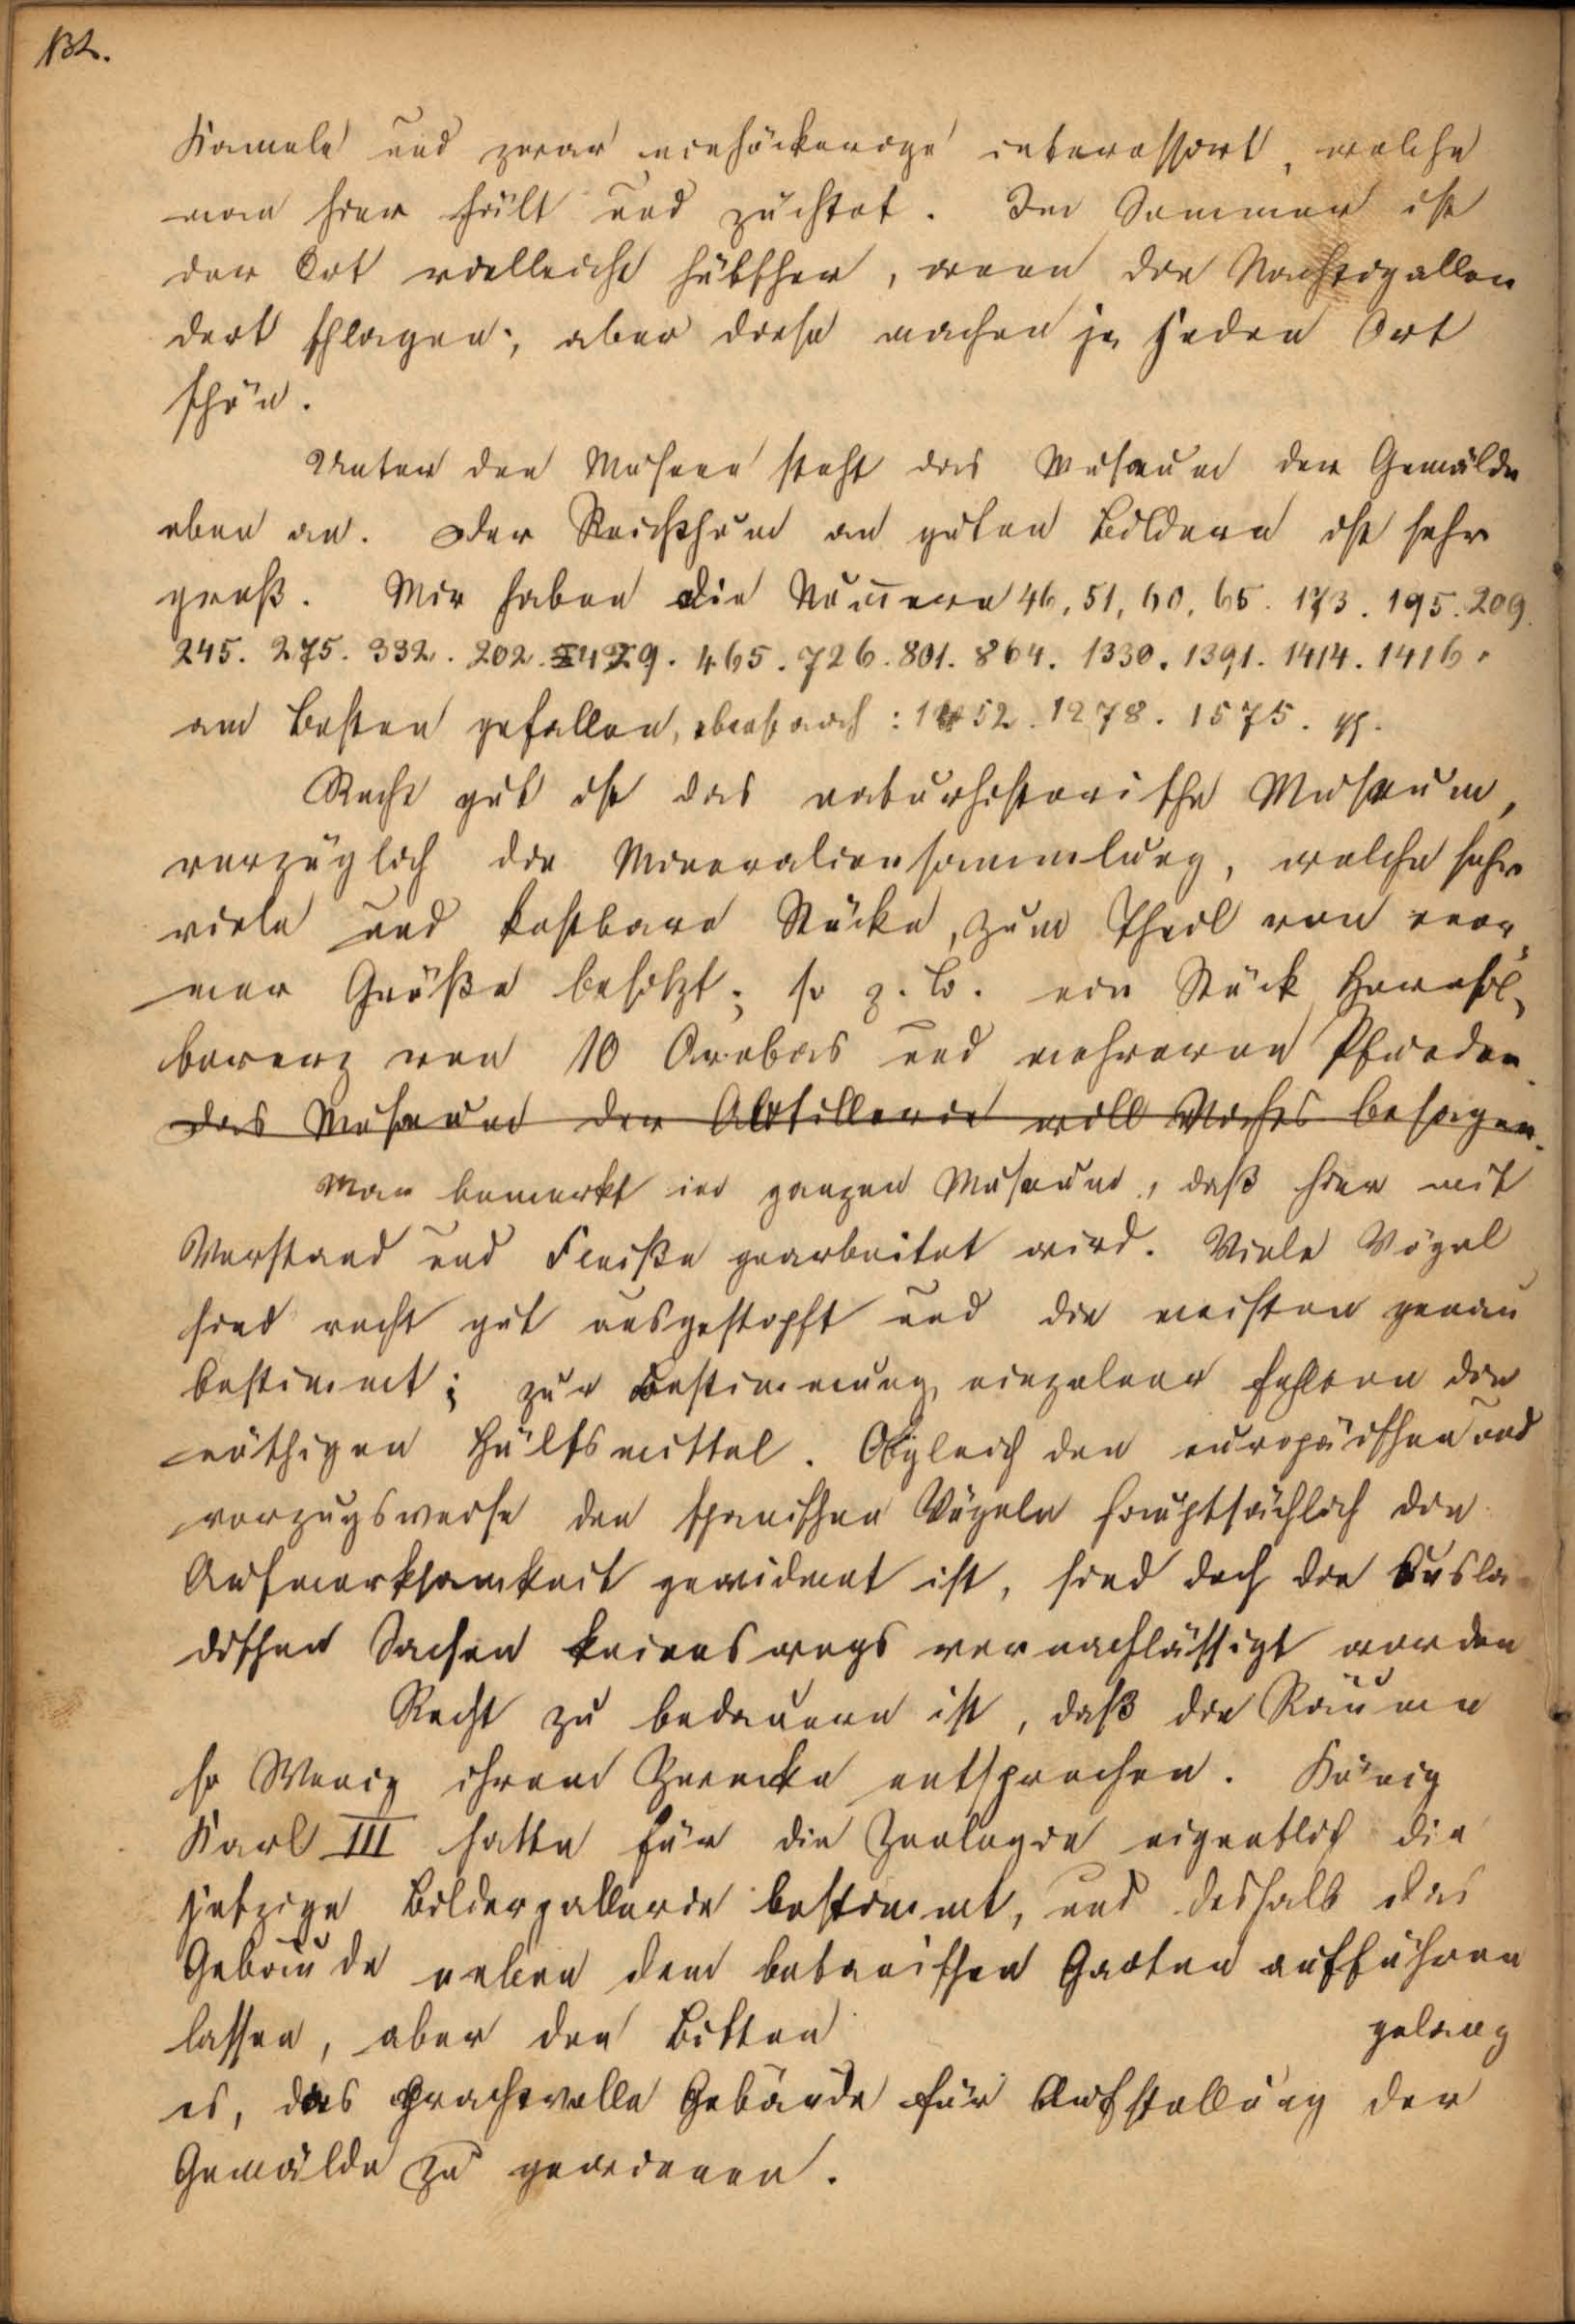 132.
Kamele und zwar einhöckerige interessirt, welche
man hier hält und züchtet. Im Sommer ist
der Ort vielleicht hübscher, wenn die Nachtigallen
dort schlagen; aber diese machen ja jeden Ort
schön.
Unter den Museen steht das Museum der Gemälde
oben an. Der Reichthum an guten Bildern ist sehr
groß. Mir haben die Nummern 46, 51, 60, 65. 173. 195. 209.
245. 275. 332. 202. 429. 465. 726. 801. 864. 1330. 1391. 1414. 1416.
am Besten gefallen, ebenso auch: 1452. 1278. 1575.
Recht gut ist das naturhistorische Museum,
vorzüglich die Mineraliensammlung, welche sehr
viele und kostbare Stücke, zum Theil von enor-
mer Größe besitzt; so z. B. ein Stück Hornsil-
bererz von 10 Arobas und mehreren Pfunden.
Das Museum der Artillerie will Nichts besagen.
Man bemerkt im ganzen Museum, daß hier mit
Verstand und Fleiße gearbeitet wird. Viele Vögel
sind recht gut ausgestopft und die meisten genau
bestimmt; zur Bestimmung einzelner fehlten die
nöthigen Hülfsmittel. Obgleich den europäischen und
vorzugsweise den spanischen Vögeln hauptsächlich die
Aufmerksamkeit gewidmet ist, sind doch die Auslä-
dischen Sachen keineswegs vernachlässigt worden
Recht zu bedauern ist, daß die Räume
so Wenig ihrem Zwecke entsprechen. König
Karl III hatte für die Zoologie eigentlich die
jetzige Bildergallerie bestimmt, und deshalb das
Gebäude neben dem botanischen Garten aufführen
lassen, aber den Bitten gelang
es, das prachtvolle Gebäude für Aufstellung der
Gemälde zu gewinnen.